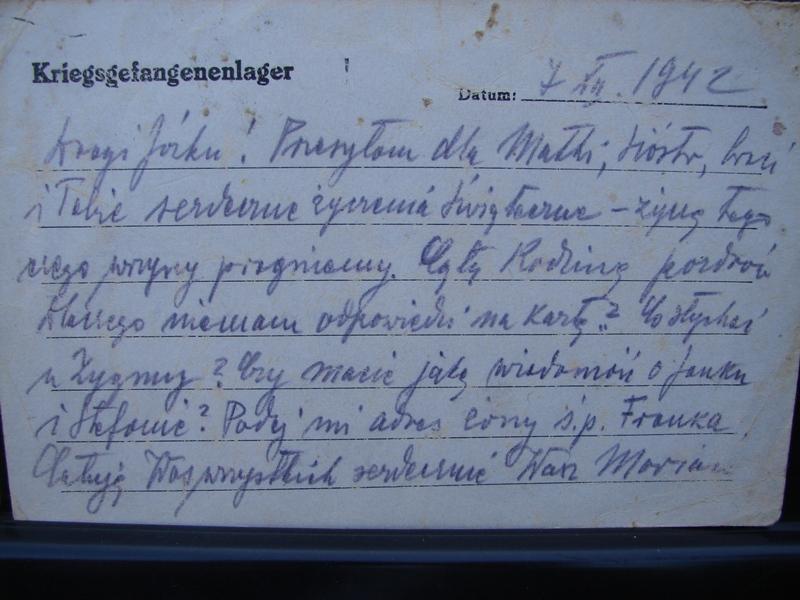 Kriegsgefangenenlager
Datum: 7 XII. 1942
Drogi Józku! Przesyłam dla Matki, Sióstr, braci
i Tobie serdeczne życzenia świąteczne – życzę tego
czego wszyscy pragniemy. Całą Rodzinę pozdrów
Dlaczego niemam odpowiedzi na kartę? Co słychać
u Zygmuny? Czy macie jaką wiadomość o Janku
i Stefanie? Podaj mi adres żony ś.p. Franka
Całuję Was wszystkich serdecznie Wasz Marian